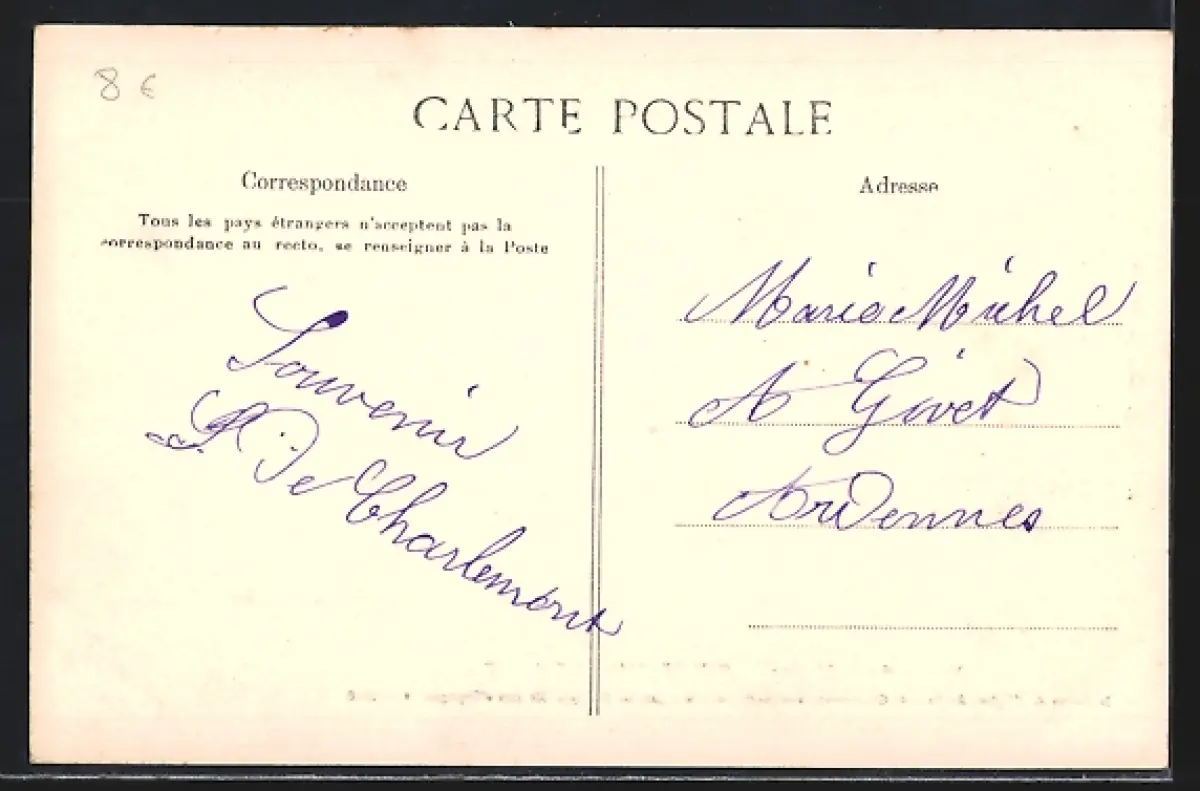 8 €
CARTE POSTALE
Correspondance
Tous les pays étrangers n'acceptent pas la
correspondance au recto, se renseigner à la Poste
Souvenir
De Charlemont
Adresse
Marie Michel
A Givet
Ardennes